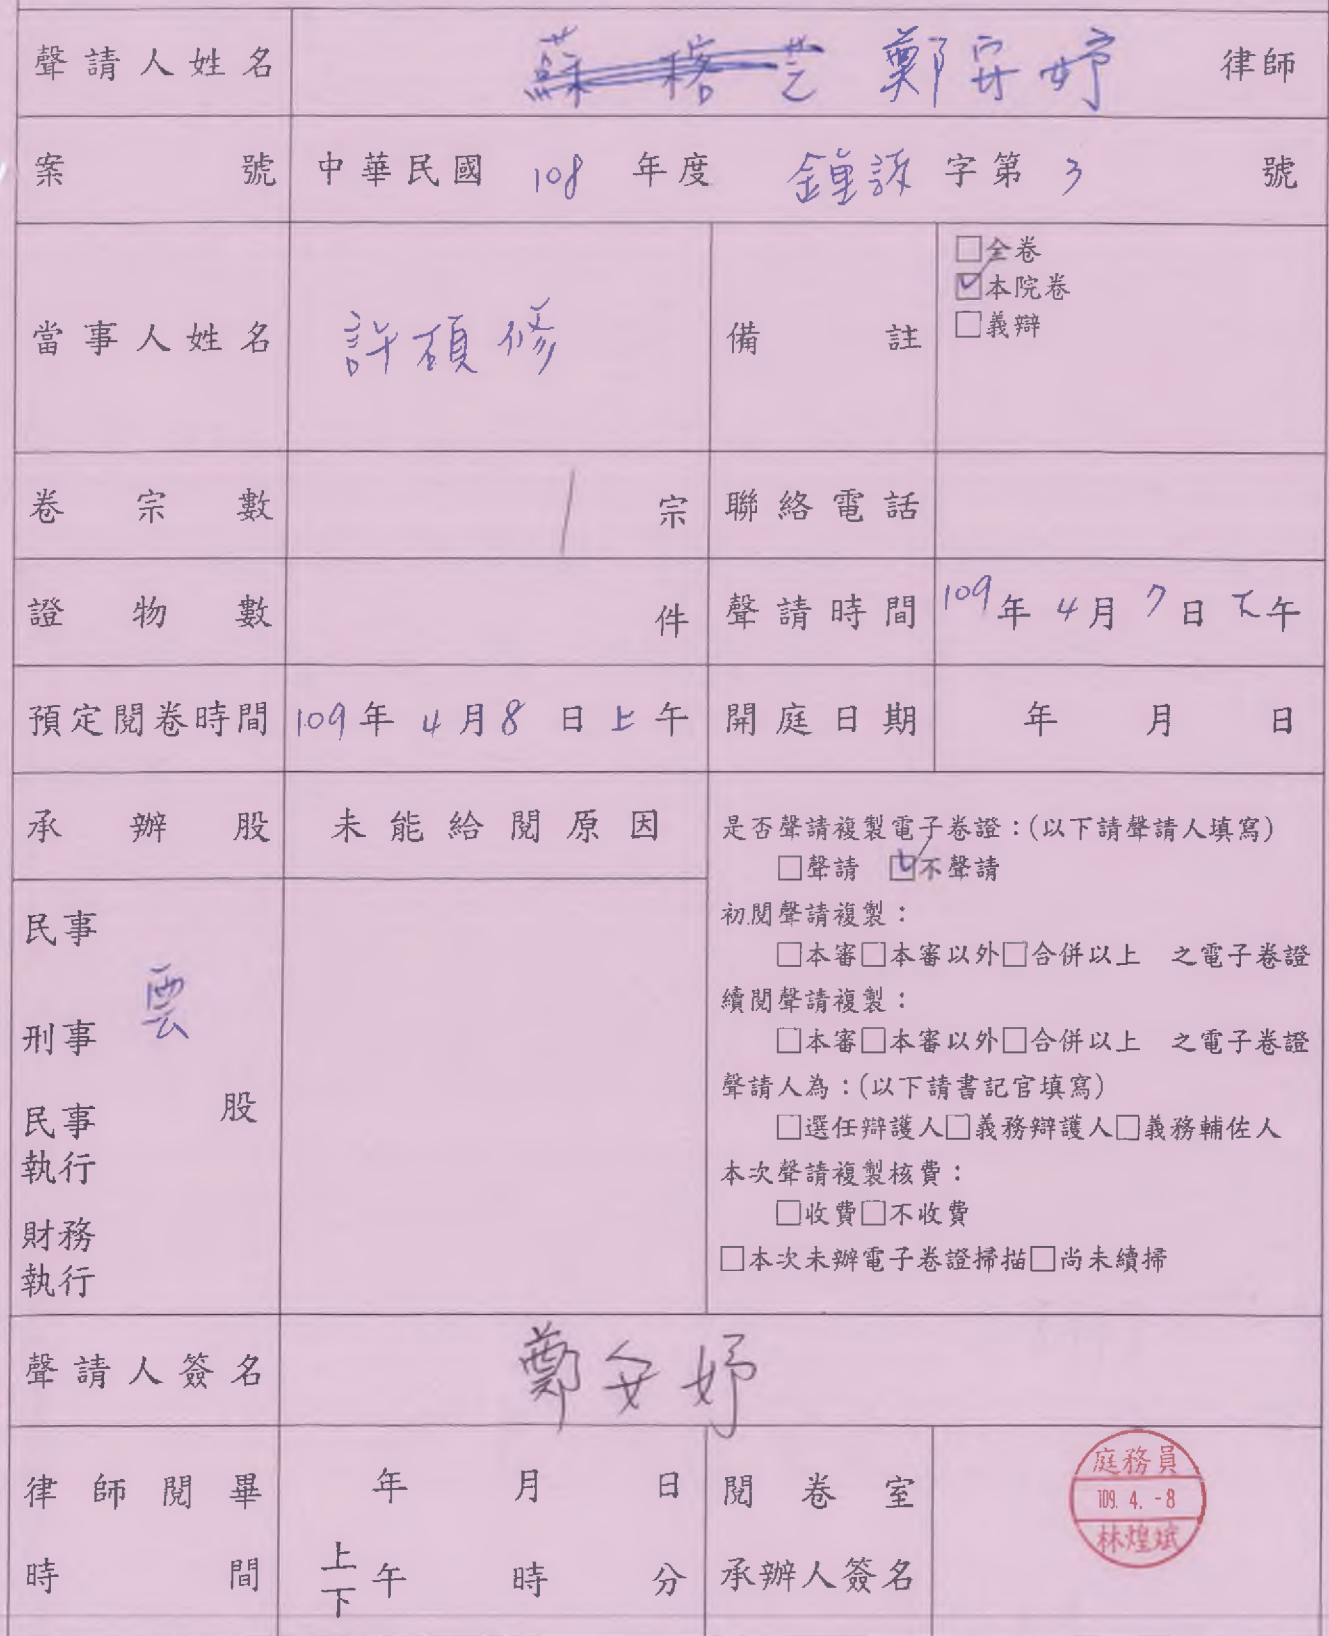 聲請人姓名 鄭安妤 律師
案號 中華民國 108 年度 鐘訴 字第 3 號
當事人姓名 許碩修 備註
□全卷
☑本院卷
□義辯
卷宗數 1 宗 聯絡電話
證物數 件 聲請時間 109年 4月 7日 下午
預定閱卷時間 109年 4月 8日 上午 開庭日期 年 月 日
承辦股 未能給閱原因
民事
雲
刑事
股
民事
執行
財務
執行
是否聲請複製電子卷證：(以下請聲請人填寫)
□聲請 ☑不聲請
初閱聲請複製：
□本審□本審以外□合併以上 之電子卷證
續閱聲請複製：
□本審□本審以外□合併以上 之電子卷證
聲請人為：(以下請書記官填寫)
□選任辯護人□義務辯護人□義務輔佐人
本次聲請複製核費：
□收費□不收費
□本次未辦電子卷證掃描□尚未續掃
聲請人簽名 鄭安妤
律師閱畢時間 年 月 日
上下午 時 分
閱卷室
承辦人簽名
庭務員
109. 4. -8
林煌斌